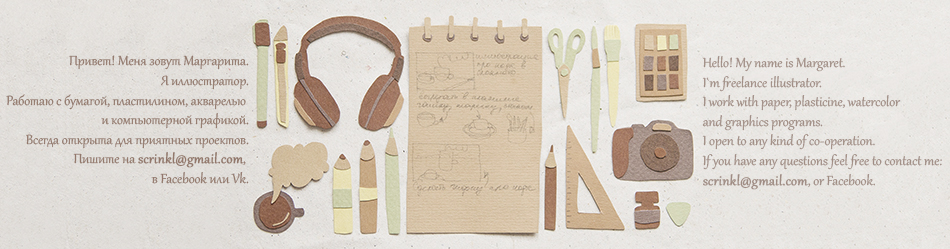 Привет! Меня зовут Маргарита.
Я иллюстратор.
Работаю с бумагой, пластилином, акварелью
и компьютерной графикой.
Всегда открыта для приятных проектов.
Пишите на scrinkl@gmail.com,
в Facebook или Vk.
Hello! My name is Margaret.
I`m freelance illustrator.
I work with paper, plasticine, watercolor
and graphics programs.
I open to any kind of co-operation.
If you have any questions feel free to contact me:
scrinkl@gmail.com, or Facebook.